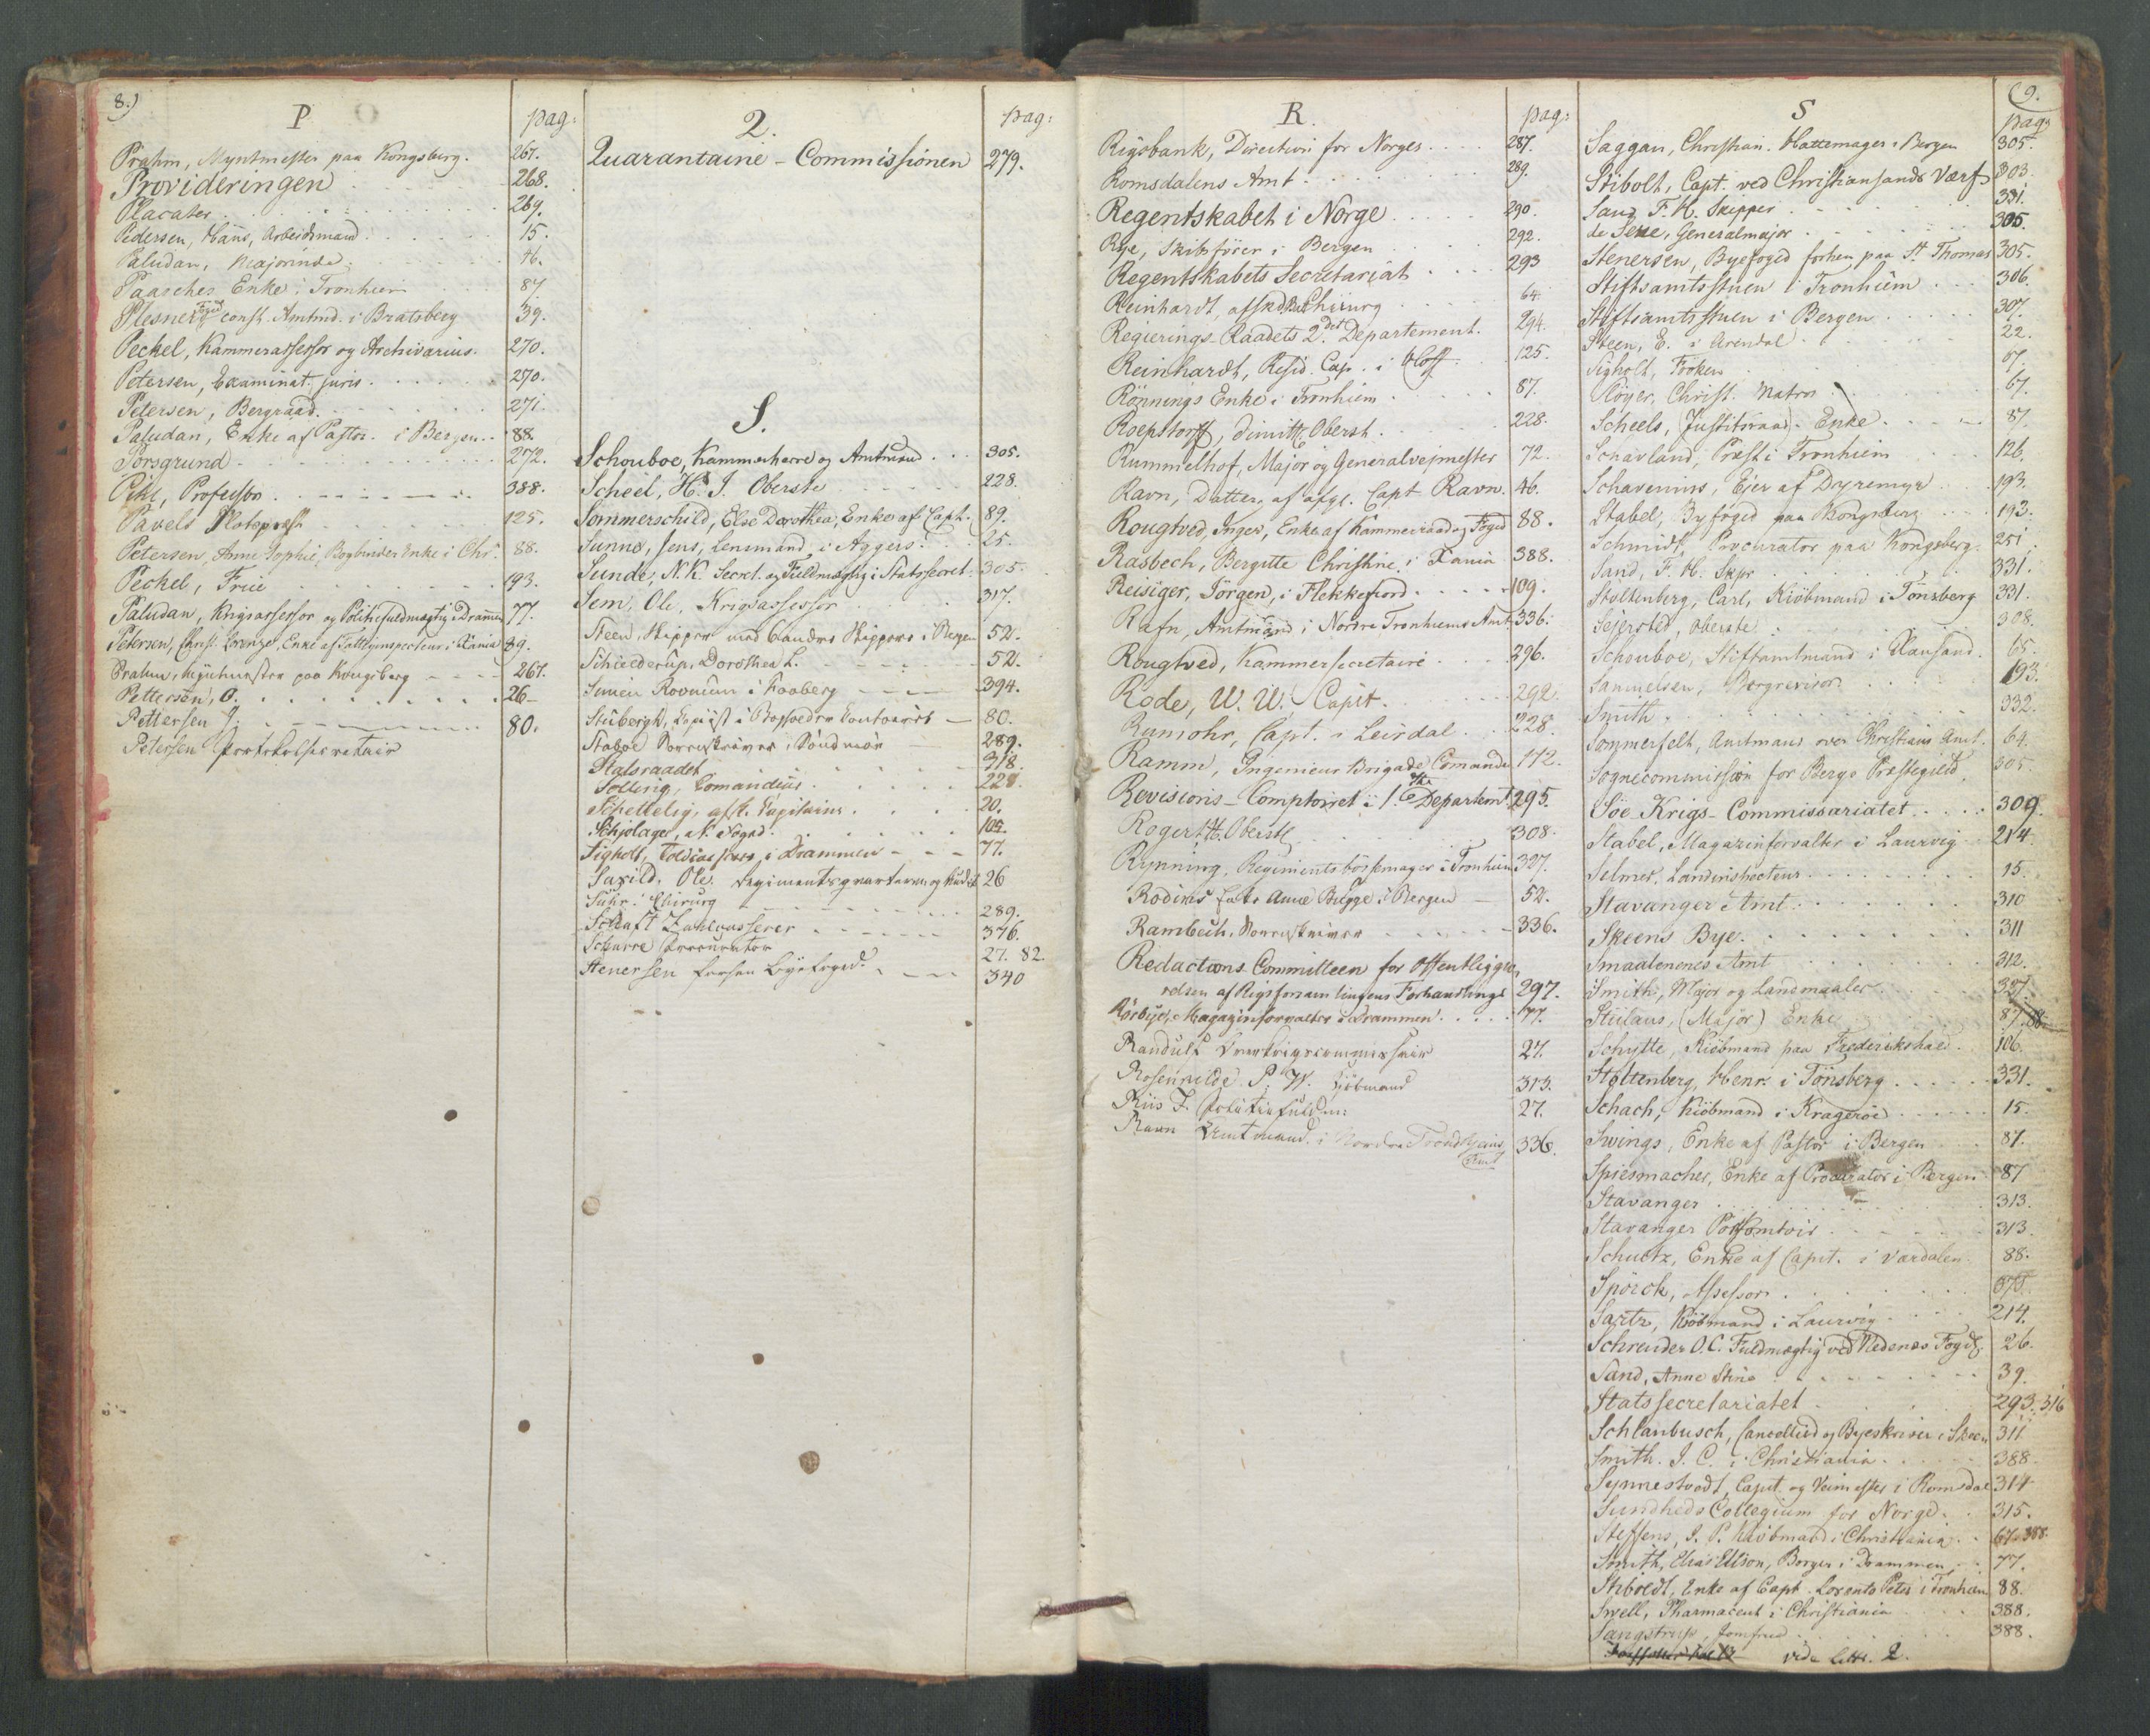 8.)
P
pag:
Prahm, Myntmester paa Kongsberg. 267.
Provideringen 268.
Placater 269.
Pedersen, Hans, Arbeidsmand 15.
Paludan, Majorinde 46.
Paasches Enke i Tronhiem 87
Plesner, Foged const. Amtmd. i Bratsberg 39.
Peckel, Kammerassessor og Archivarius. 270.
Petersen, Examinat. juris 270.
Petersen, Bergraad. 271.
Paludan, Enke af Pastor i Bergen 88.
Porsgrund 272.
Pihl, Professor 388.
Pavels Slotspræst 125.
Petersen, Anne Sophie, Bogbinder Enke i Chr. 88.
Peckel, Frue 193.
Paludan, Krigsassessor og Politiefuldmægtig i Drammen 77.
Petersen, Christ. Lorenze, Enke af Tattoinspecteur i Xania 89.
Prahm, Myntmester paa Kongsberg 267.
Pettersen, O. 26
Pettersen J. 80.
Petersen Protokolsecretair
2.
pag:
Quarantaine-Commissionen 279.
S.
Schouboe, Kammerherre og Amtmand 305.
Scheel, H. J. Oberste 228.
Sommerschild, Else Dorothea, Enke af Capt. 89.
Sunne, Jens, Lensmand i Aggers 25.
Sunde, N. K. Secret. og Fuldmægtig i Statssecret. 305.
Sem, Ole, Krigsassessor 317.
Steen, Skipper med andre Skippere i Bergen 52.
Schielderup, Dorothea L. 52.
394.
Stubergh, Copiist i 80.
Sorenskriver i Söndmör 289.
Statsraadet 318.
Solling, Comandeur 228.
20.
Schjolager, N. Foged 105.
Sigholt, Toldcasserer i Drammen 77.
Saxild, Ole. regimentsqvarterm. og Auditör 26
Suhr. Chirurg 289.
Schaft Zahlcasserer 376.
Scharre Procurator 27. 82.
Stenersen forhen Byefoged 340
R.
pag:
Rigsbank, Direction for Norges 287.
Romsdalens Amt 289.
Regentskabet i Norge 290.
Rye, Skibsförer i Bergen 292.
Regentskabets Secretariat 293
Reinhardt, afsked. Bat. Chirurg 64.
Regierings-Raadets 2det Departement. 294.
Reinhardt, Resid. Cap. i Hoff 125.
Rönnings Enke i Tronhiem 87.
Roepstorff, dimitt. Oberst 228.
Rummelhof, Major og Generalvejmester 72.
Ravn, Datter af afg. Capt Ravn. 46.
Rougtved, Inger, Enke af Kammerraad og Foged 88.
Rasbech, Bergitte Christine, i Xania 388.
Reisiger, Jörgen, i Flekkefiord 109.
Rafn, Amtmand i Nordre Tronhiems Amt 336.
Rougtved, Kammersecretaire 296.
Rode, W. W. Capit. 292.
Rumohr, Capt. i Leirdal 228.
Ramm, Ingenieur Brigade Comande 112.
Revisions-Comptoiret i 1ste Departemt. 295.
Rogert H. Oberstl 308.
Rynning, Regimentsbössemager i Tronhiem 327.
Rodins Enke Anne Bugge i Bergen 52.
Rambech, Sorenskriver 336.
Redactions-Committeen for Offentliggiö-
relsen af Rigsforsamlingens Forhandlinger 297.
Rörbye, Magazinforvalter i Drammen 77.
Randulf Overkrigscommissair 27.
Rosenvilde P. W. Kjöbmand 313.
Riis J. Politiefuldm: 27.
Ravn Amtmand i Nordre Trondhjems Amt 336.
(9.
S
pag:
Saggau, Christian. Hattemager i Bergen 305.
Stibolt, Capt. ved Christiansands Værf 303.
Sand, F. H. Skipper 331.
de Seue, Generalmajor 305.
Stenersen, Byefoged forhen paa St Thomas 305.
Stiftsamtsstuen i Tronhiem 306.
Stiftsamtsstuen i Bergen 307.
Steen, E. i Arendal 22.
Sigholt, Fröken 67.
Röyer, Christ. Matros 67.
Scheels, Justitsraad. Enke 87.
Schavland, Præst i Tronhiem 126.
Schavenius, Ejer af Dyremyr 193.
Stabel, Byfoged paa Kongsberg 193.
Schmidt, Procurator paa Kongsberg. 251.
Sand, F. H. Skpr 331.
Stoltenberg, Carl, Kiöbmand i Tönsberg 331.
Sejersted, Oberste 308.
Schouboe, Stiftamtmand i Xansand. 65.
Samuelsen, Bergrevisor 193.
Smith 332.
Sommerfelt, Amtmand over Christians Amt. 64.
Sognecommission for Bergs Præstegield. 305.
Söe-Krigs-Commissariatet 309.
Stabel, Magazinforvalter i Laurvig 214.
Selmer, Landinspecteur 15.
Stavanger Amt 310
Skeens Bye 311
Smaalenenes Amt 312.
Smith, Major og Landmaaler 327.
Stülaus, (Major) Enke 87. 88.
Schytte, Kiöbmand paa Frederikshald 106.
Stoltenberg, Henr. i Tönsberg 331.
Schach, Kiöbmand i Krageröe 15.
Swings, Enke af Pastor i Bergen 87.
Spiesmacher, Enke af Procurator i Bergen 87
Stavanger 313.
Stavanger Postcontoir 313.
Schultz, Enke af Capit. i Værdalen 88.
Spörck, Assessor
Sartz, Kiöbmand i Laurvig 214.
Schreuder O. C. Fuldmægtig ved Nedenes Fogd. 26.
Sand, Anne Stine 39.
Statssecretariatet 293. 316
Schlanbusch, Cancellieraad og Byeskriver i Skeen 311
Smith. J. C. i Christiania 388.
Synnestvedt, Capit. og Veimester i Romsdal 314
Sundheds Collegium for Norge 315.
Steffens, J. P. Kiöbmand i Christiania 67. 388.
Smith, Elias Ellson, Borger i Drammen 77.
Stiboldt, Enke af Capt. Lorents Peter i Tronhiem 88.
Swell, Pharmaceut i Christiania 388.
Sangstrup, Jomfrue 388.
vide Littr. 2.